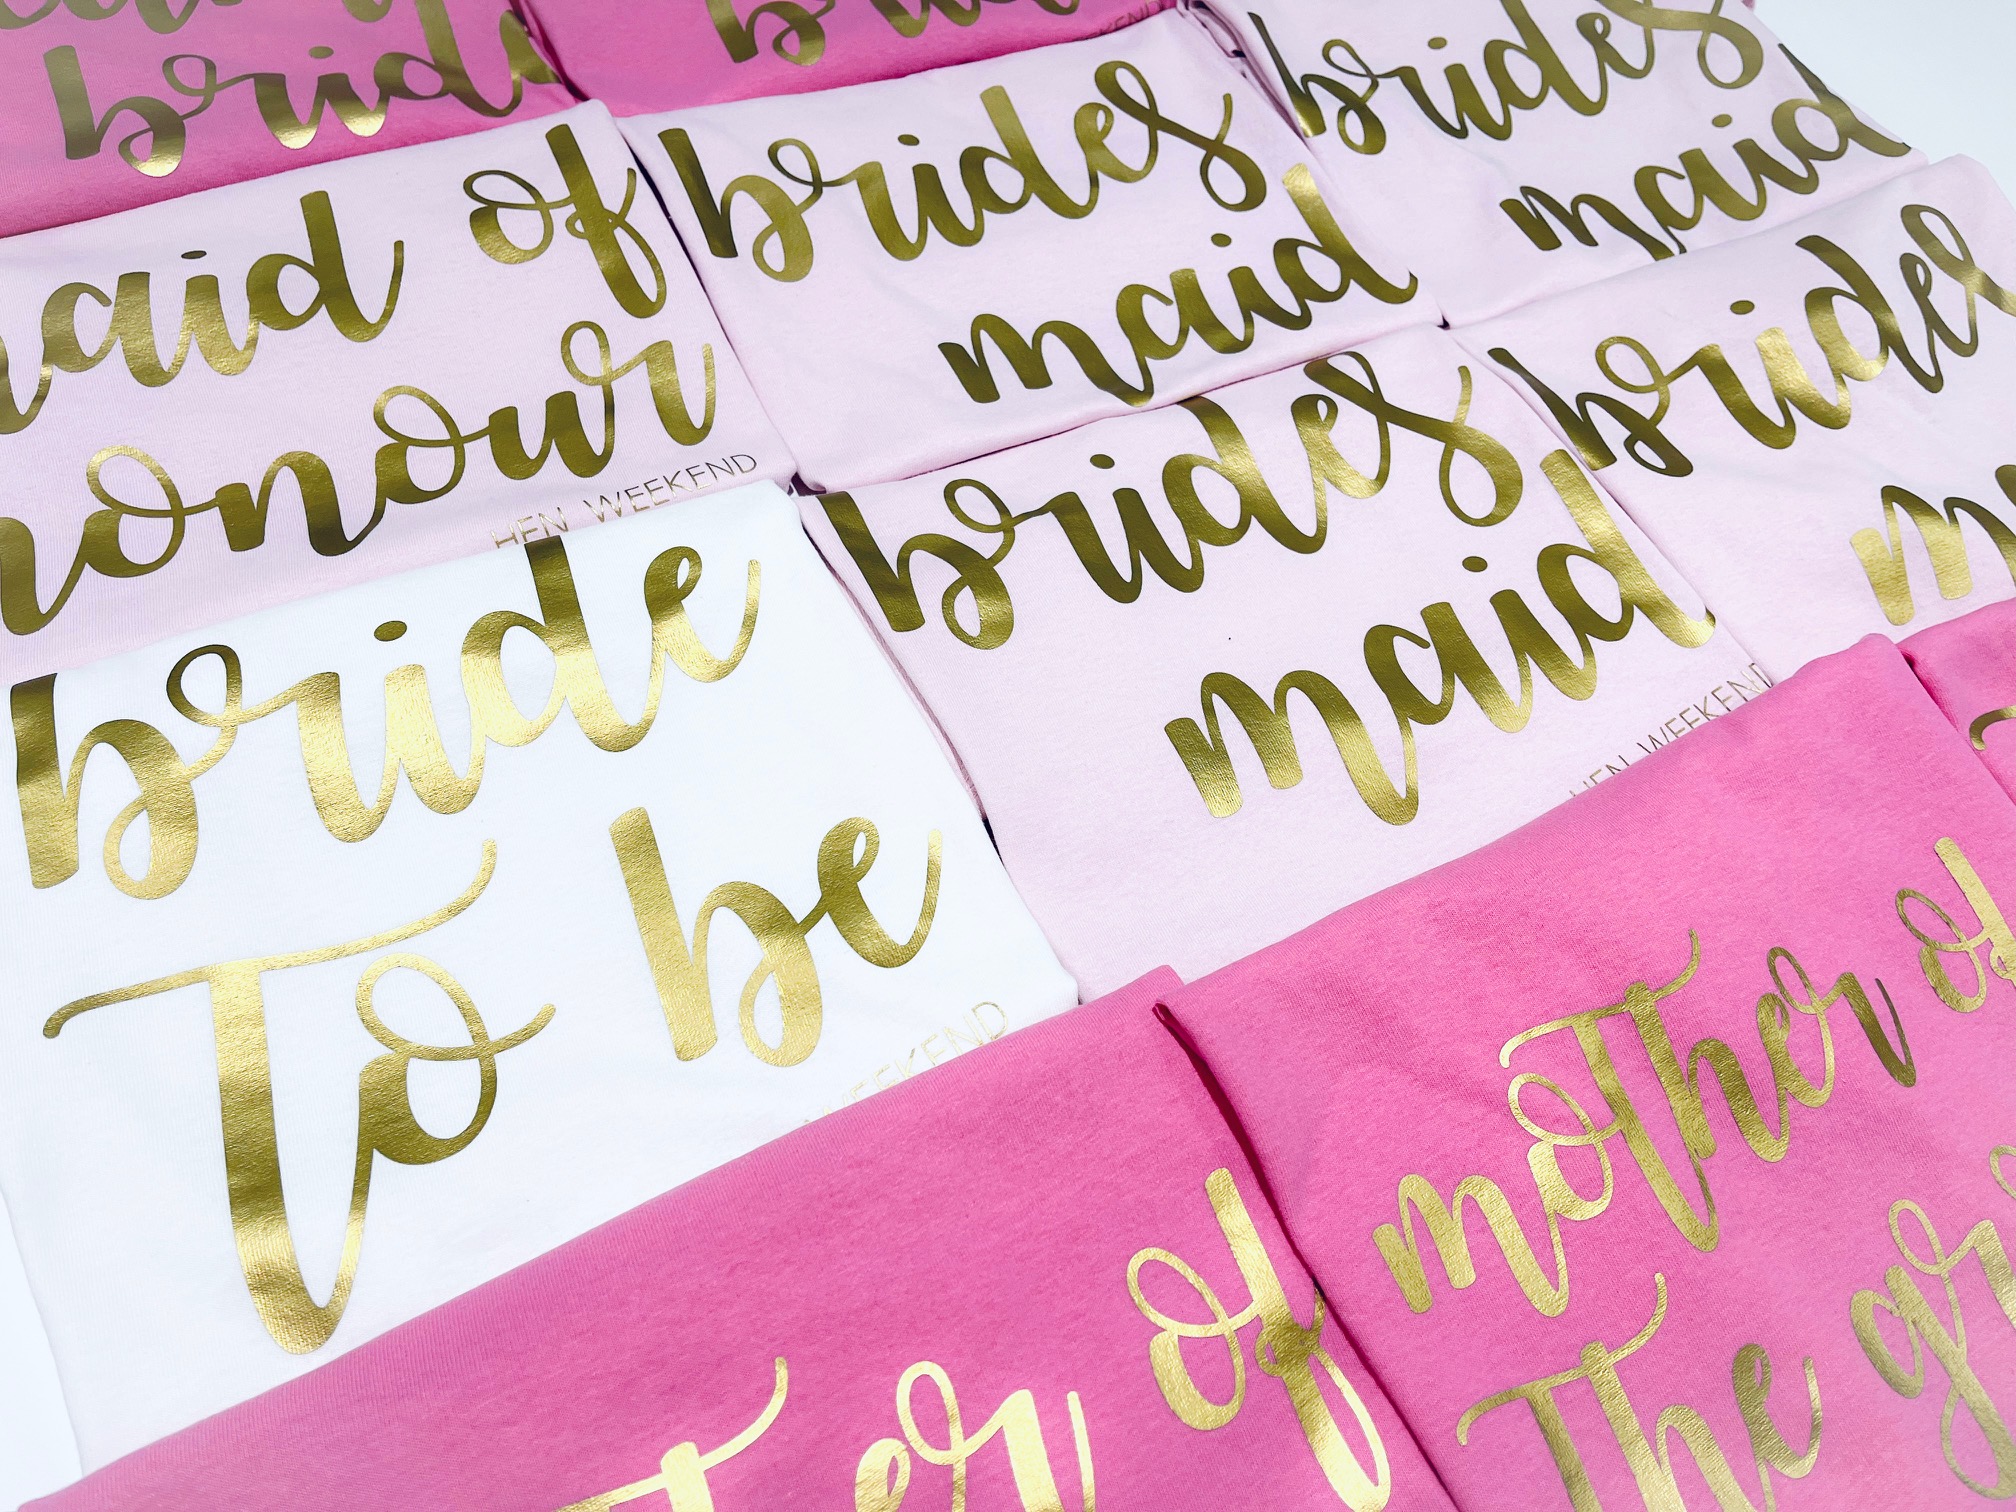 bride
maid of
honour
HEN WEEKEND
brides
maid
brides
maid
bride
To be
WEEKEND
brides
maid
HEN WEEKEND
brides
of
mother of
The